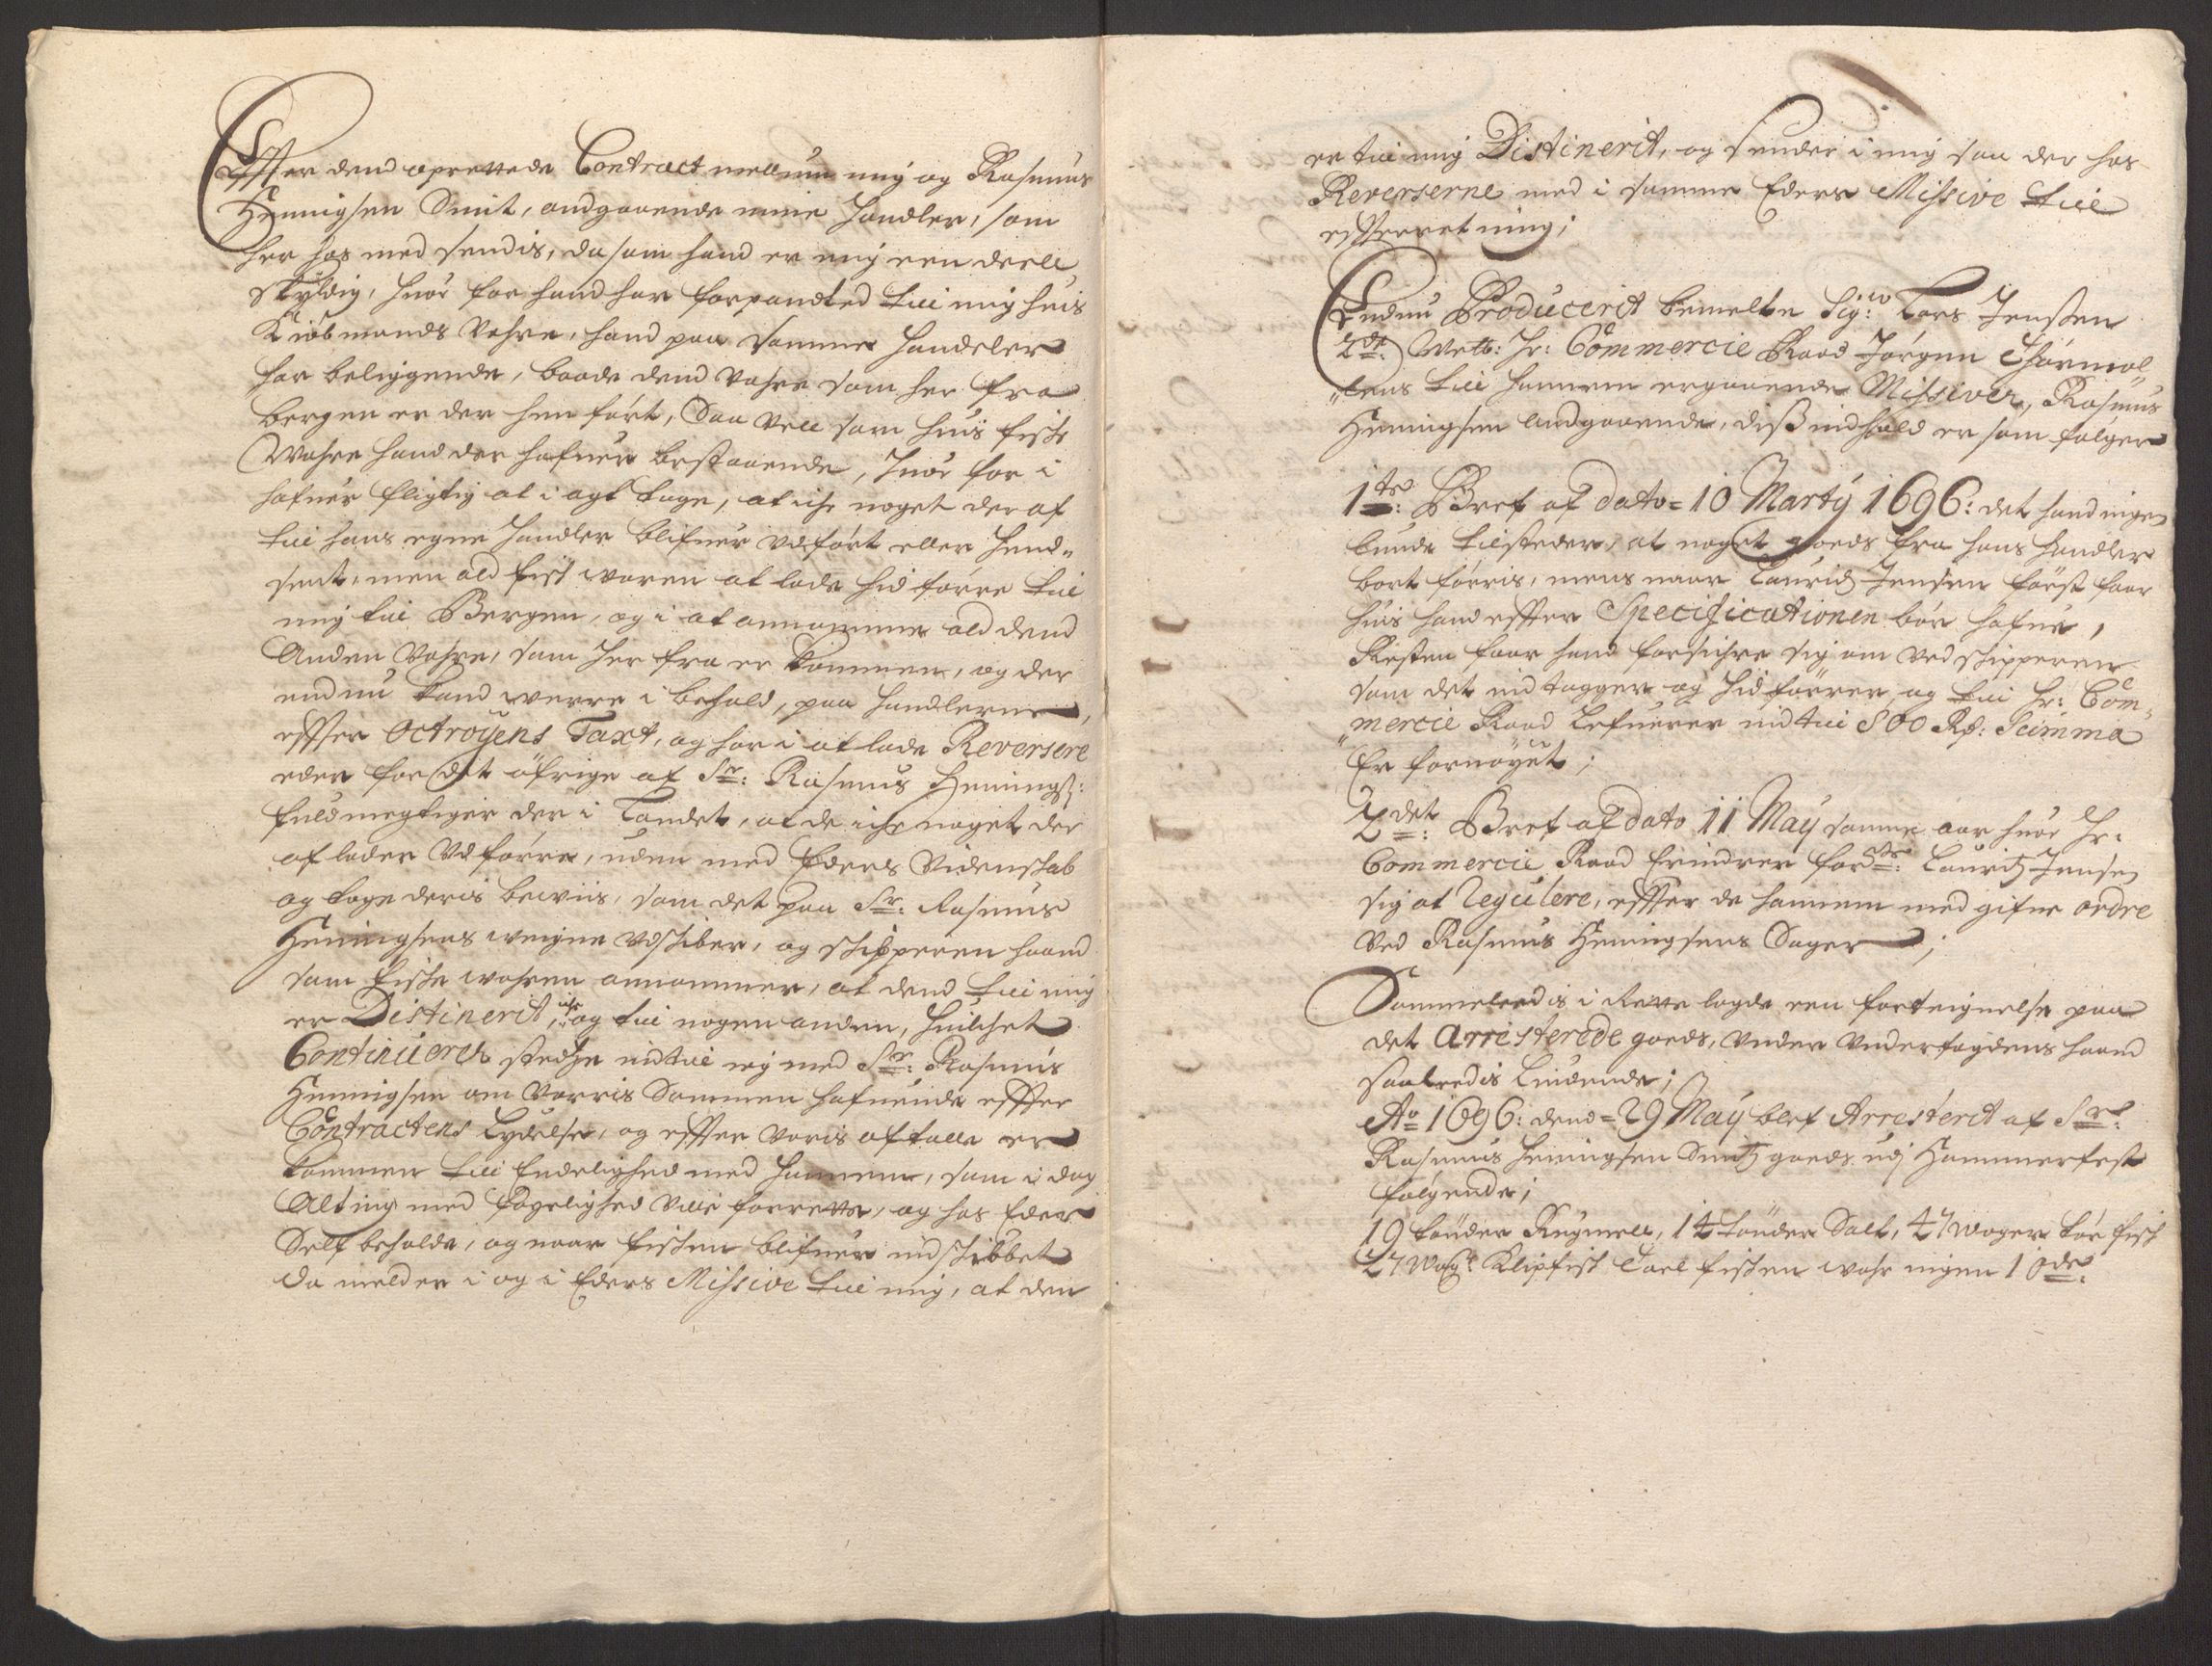 Effter dend oprettede Contract mellum mig og Rasmus
Hennigsen Smit, andgaaende mine Handler, som
her hos med sendis, da som hand er mig een deell
skyldig, huor for hand har forpandted till mig huis
Kiøbmands Vahre, hand paa samme Handeler
har beliggende, baade dend Vahre som her fra
bergen er der hen ført, Saa vell som huis fiske
Wahre hand der hafuer bestaaende, huor for i
hafuer fligtig at i agt tage, at iche noget der af
till hans egne Handler blifuer udført eller hend-
sent, men ald fisk waren at lade hid førre till
mig till Bergen, og i at annamme ald dend
Anden Vahre, som her fra er kommen, og der
endnu kand werre i behold, paa Handlerne,
effter Octroÿens Taxt, og har i at lade Reversere
eder for det øfrige af Sr: Rasmus Hennings:
fuldmegtiger der i Landet, at de iche noget der
af lader Udførre, uden med Eders Videnskab
og tage deris beviis, som det paa Sr: Rasmus
Henningsens weigne udskiber, og skipperen haand
som fiske wahren annammer, at dend till mig
er Destinerit, og iche till nogen anden, huilchet
Continuerer stedtze indtill ieg med Sr: Rasmus
Hennigsen om Vorris Sammen hafuende effter
Contractens Lydelse, og effter Voris aftalle er
kommen till Endelighed med hannem, som i dog
Alting med føyelighed Ville forrette, og hos Eder
Self beholde, og naar fisken blifuer indskibbet
da melder i og i Eders Missive till mig, at den
er till mig Distinerit, og sender i mig saa der hos
Reverserne med i samme Eders Missive till
effterretning;
Endnu Producerit bemelte Sigr: Lars Jenssen
2de: Welb: Hr: Commercie Raad Jørgen Thormøl-
lens till hannem ergaaende Missiver, Rasmus
Henningsen andgaaende, diss indhold er som følger
1te: Bref af dato= 10 Marty 1696: det hand ingen
lunde tilsteder, at noget goeds fra hans handler
bort førris, mens naar Lauridz Jensen først faar
huis hand effter Specificationen bør hafue,
Resten faar hand forsichre sig om ved skipperen
som det indtagger og hid førrer og till Hr: Com-
mercie Raad Lefuerer indtill 800 Rd: Summa
Er fornøyet;
2det: Bref af dato 11 May samme aar huor Hr:
Commercie Raad Erindrer forste: Lauridz Jensen
sig at Regulere, effter de hannem med gifne ordre
Ved Rasmus Henningsens Sager;
Sammeledis i Rette lagde een forteignelse paa
det Arristerede goeds, under underfogdens haand
saaledis Liudende;
Ao 1696: dend= 29 May blef Arresterit af Sr:
Rasmus Henningsen Smitz goeds udj Hammerfest
følgende;
19 tønder Rugmell, 14 tønder Salt, 47 woger tør fisk
27 Wog: Klipfisk Tael fisken wahr ingen 10de: